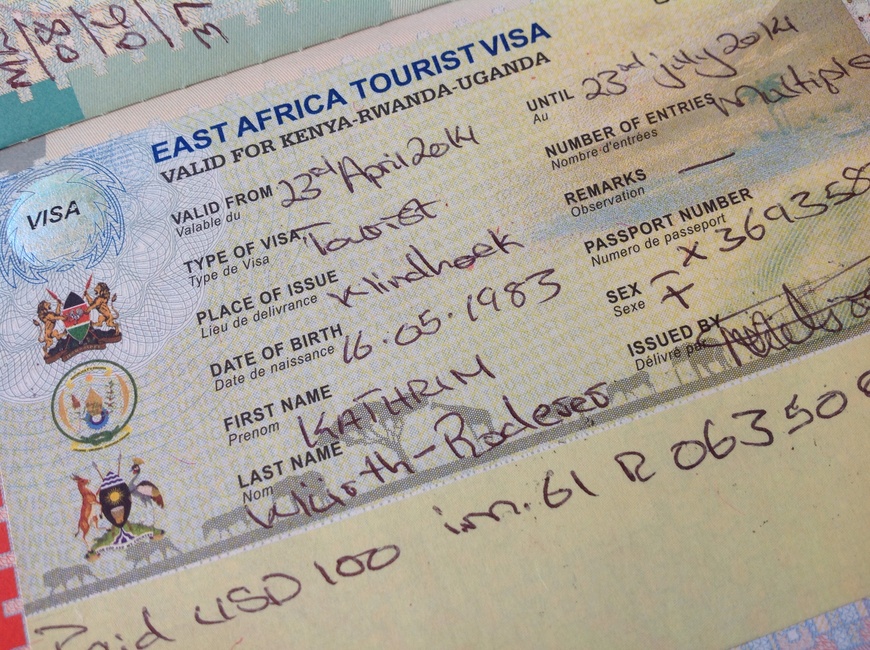 VISA
EAST AFRICA TOURIST VISA
VALID FOR KENYA-RWANDA-UGANDA
VALID FROM 23rd April 2014
Valable du
UNTIL 23rd july 2014
Au
TYPE OF VISA Tourist
Type de Visa
NUMBER OF ENTRIES Multiple
Nombre d'entrées
PLACE OF ISSUE Windhoek
Lieu de délivrance
REMARKS —
Observation
DATE OF BIRTH 16.05.1983
Date de naissance
PASSPORT NUMBER
Numero de passeport X 369358
FIRST NAME KATHRIN
Prenom
SEX F
Sexe
LAST NAME Würth-Roderer
Nom
ISSUED BY
Délivré par
Paid USD 100 im. 61 R 063508